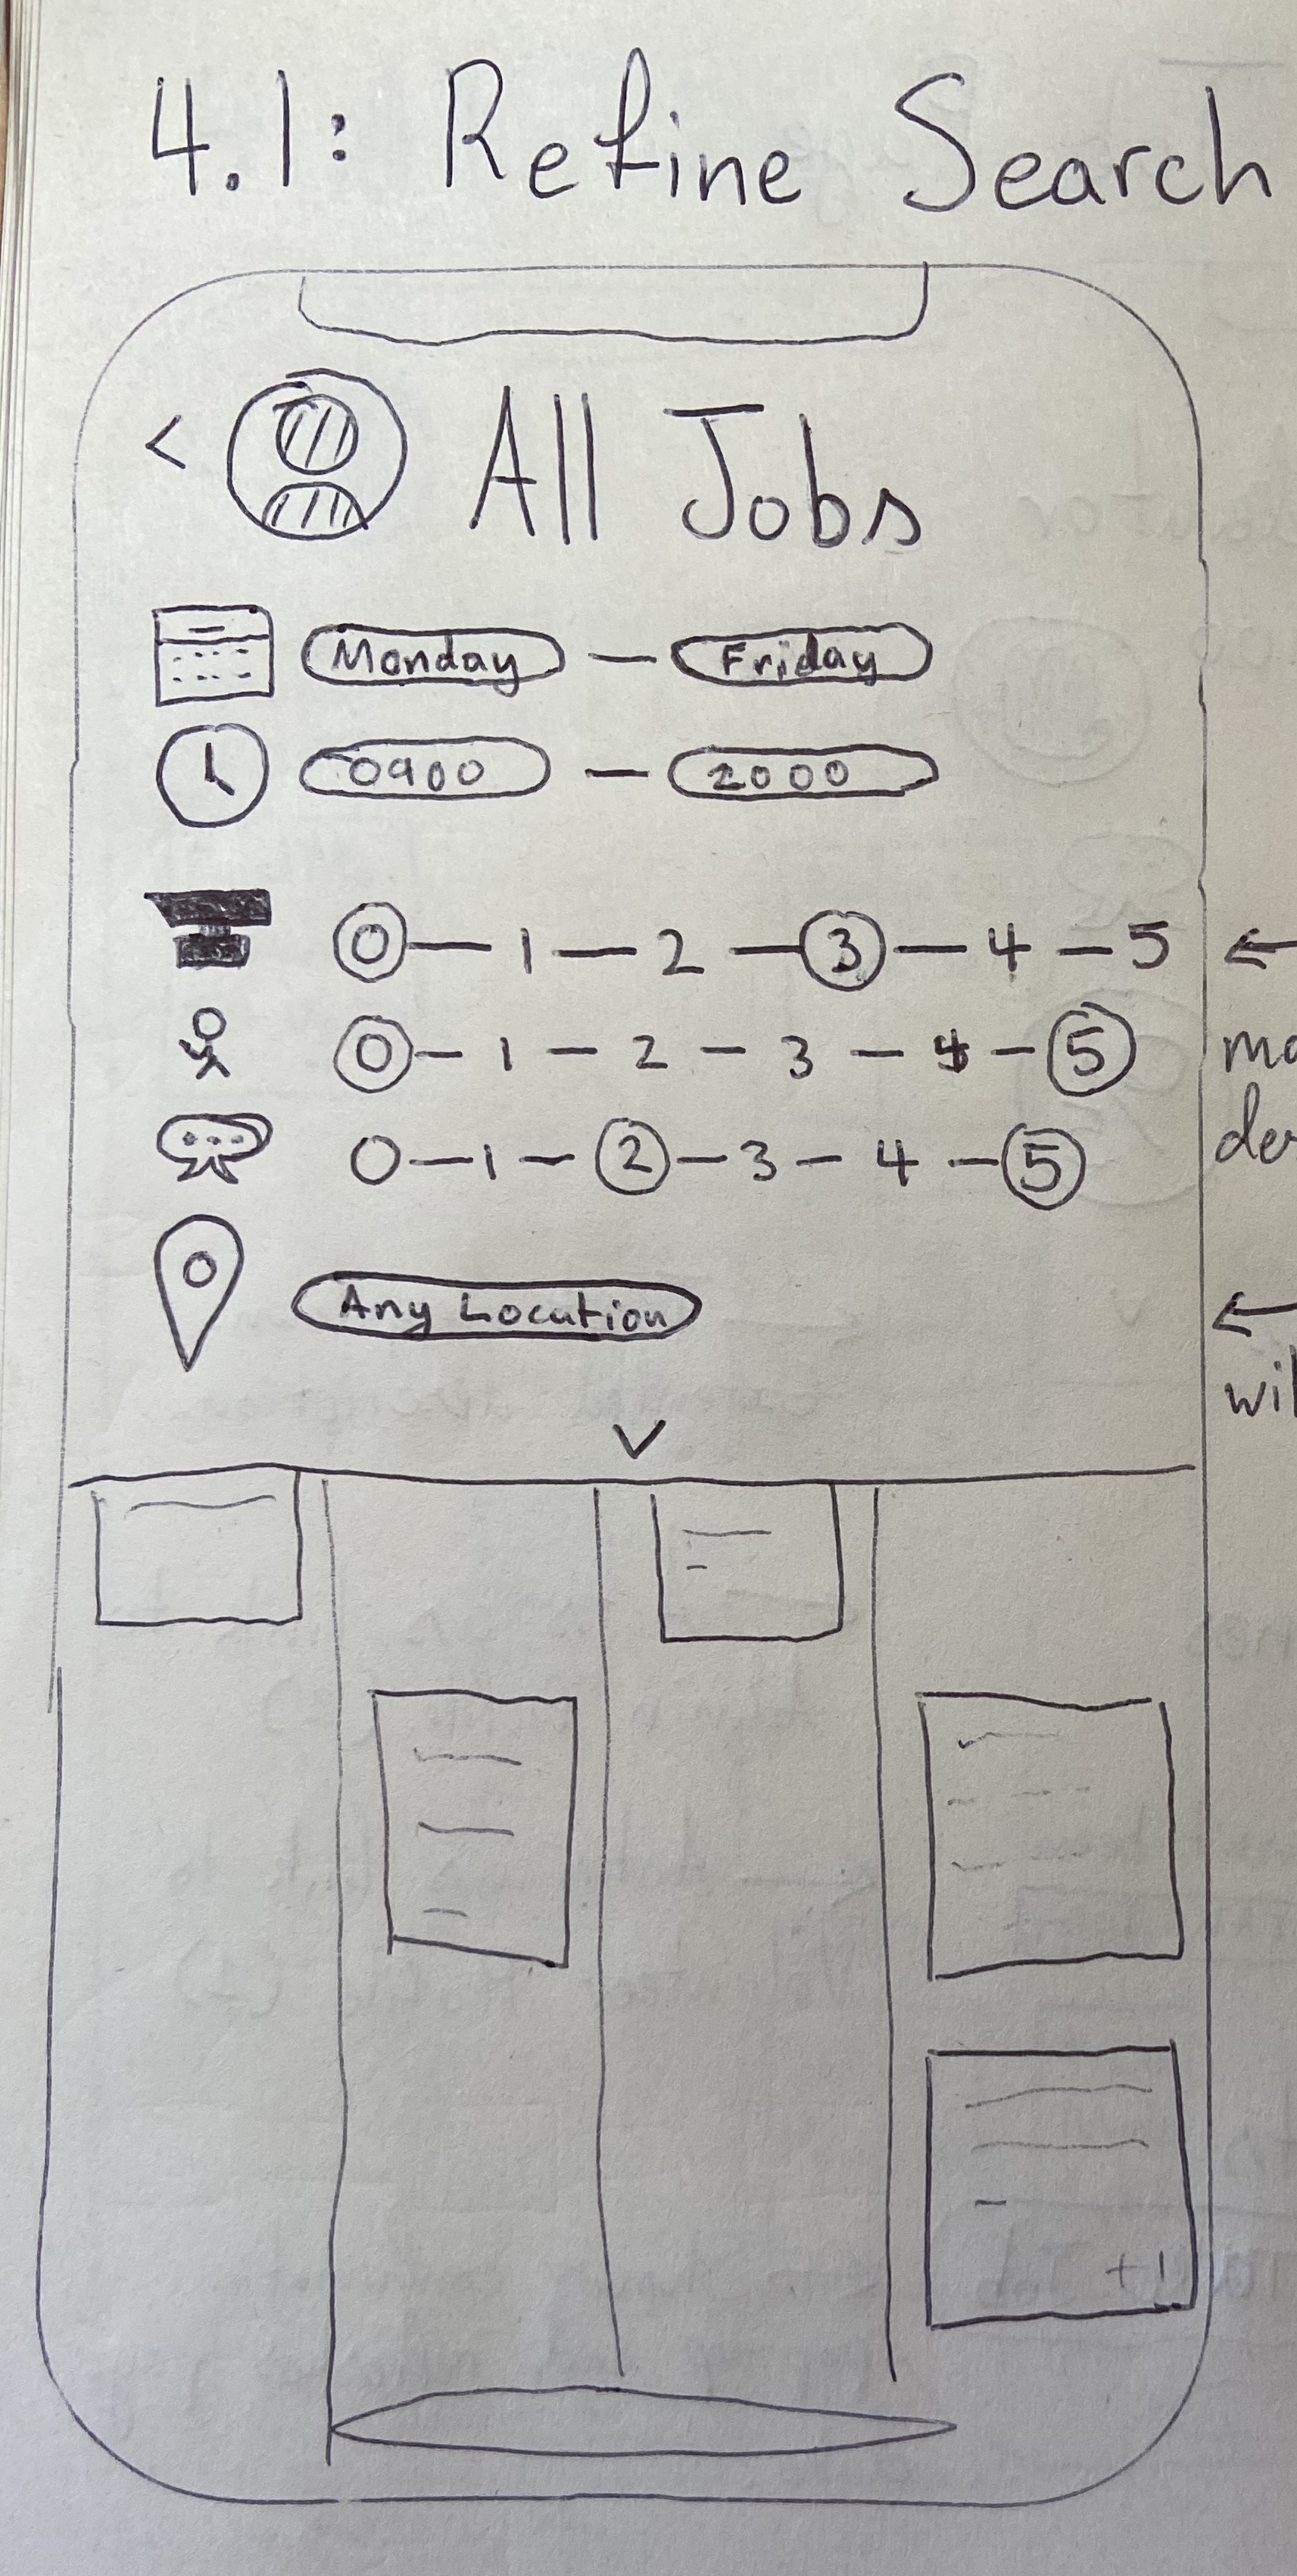 4.1: Refine Search
< All Jobs
Monday — Friday
0900 — 2000
0 — 1 — 2 — 3 — 4 — 5 ←
0 — 1 — 2 — 3 — 4 — 5
0 — 1 — 2 — 3 — 4 — 5
Any Location ←
+1